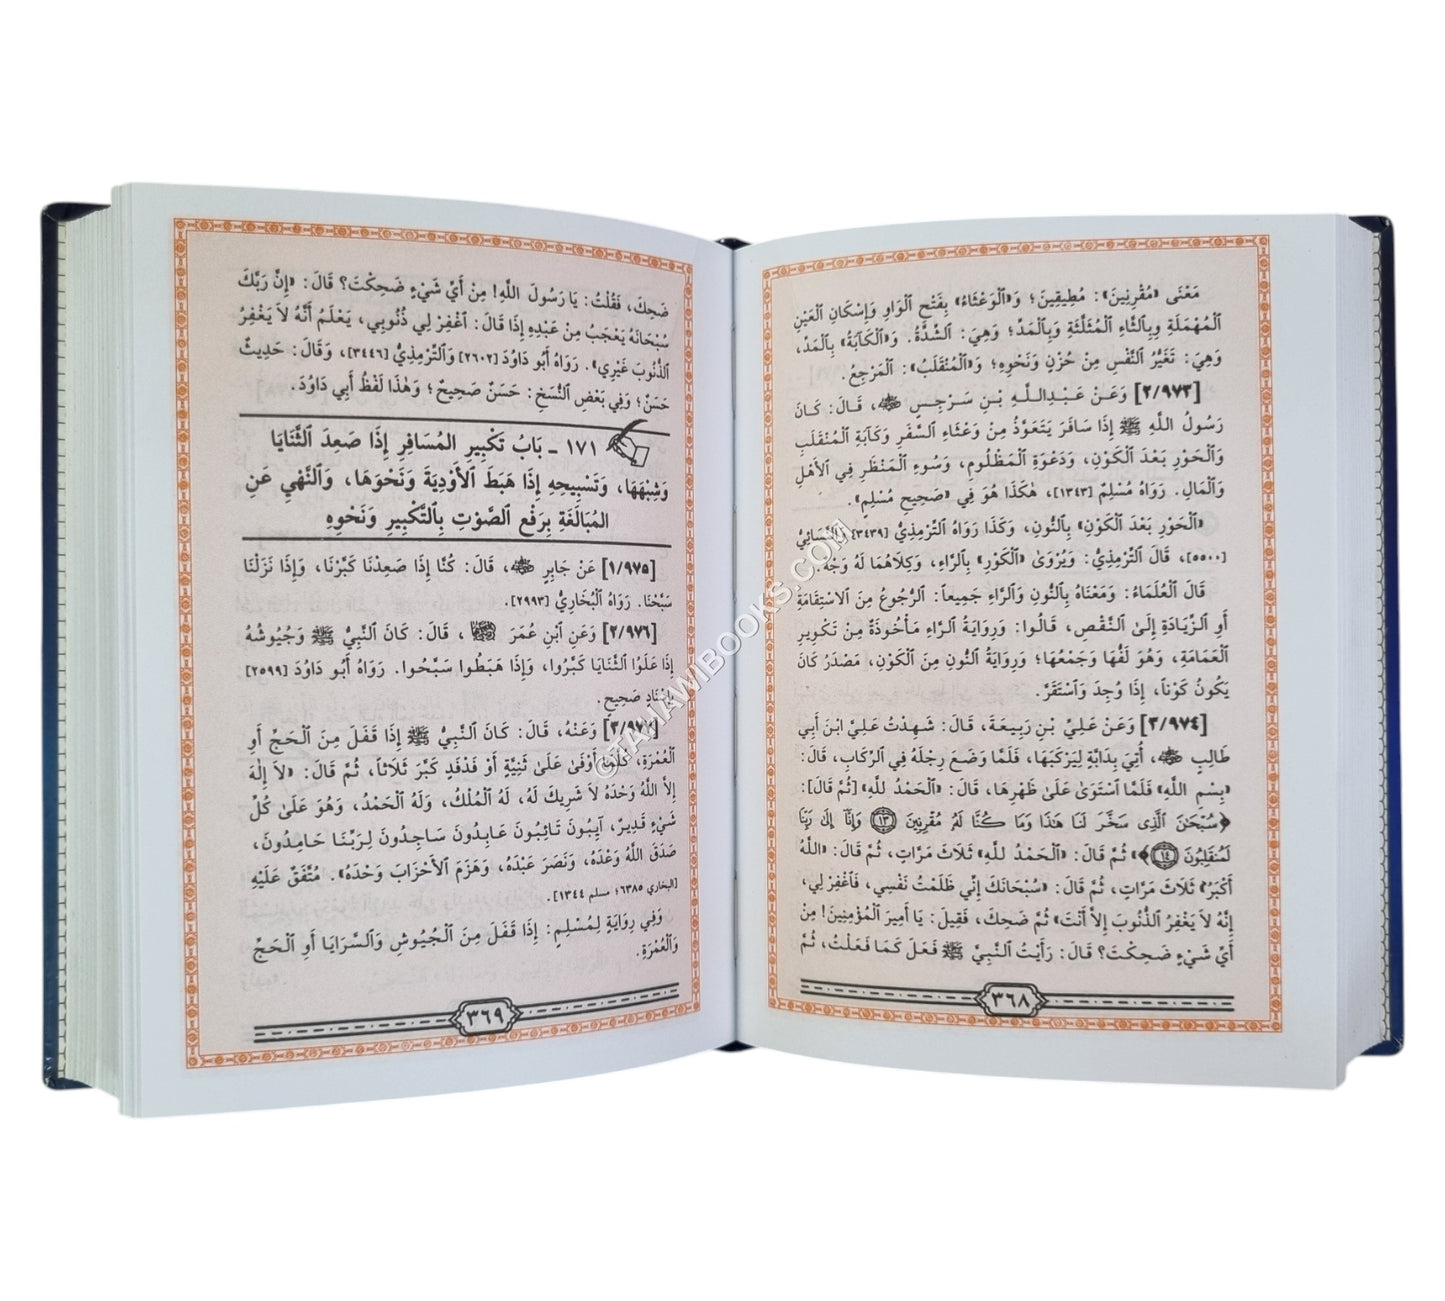 مَعْنَى «مُقْرِنِينَ»: مُطِيقِينَ؛ وَ«ٱلْوَعْثَاءُ» بِفَتْحِ ٱلْوَاوِ وَإِسْكَانِ ٱلْعَيْنِ
ٱلْمُهْمَلَةِ وَبِٱلثَّاءِ ٱلْمُثَلَّثَةِ وَبِٱلْمَدِّ؛ وَهِيَ: ٱلشِّدَّةُ. وَ«ٱلْكَآبَةُ» بِٱلْمَدِّ،
وَهِيَ: تَغَيُّرُ ٱلنَّفْسِ مِنْ حُزْنٍ وَنَحْوِهِ؛ وَ«ٱلْمُنْقَلَبُ»: ٱلْمَرْجِعُ.
[٢/٩٧٣] وَعَنْ عَبْدِاللهِ بْنِ سَرْجِسٍ ﷺ، قَالَ: كَانَ
رَسُولُ اللَّهِ ﷺ إِذَا سَافَرَ يَتَعَوَّذُ مِنْ وَعْثَاءِ ٱلسَّفَرِ وَكَآبَةِ ٱلْمُنْقَلَبِ
وَٱلْحَوْرِ بَعْدَ ٱلْكَوْنِ، وَدَعْوَةِ ٱلْمَظْلُومِ، وَسُوءِ ٱلْمَنْظَرِ فِي ٱلأَهْلِ
وَٱلْمَالِ. رَوَاهُ مُسْلِمٌ [١٣٤٣]، هٰكَذَا هُوَ فِي «صَحِيحِ مُسْلِمٍ».
«ٱلْحَوْرِ بَعْدَ ٱلْكَوْنِ» بِٱلنُّونِ، وَكَذَا رَوَاهُ ٱلتِّرْمِذِيُّ [٣٤٣٩] وَٱلنَّسَائِيُّ
[٥٥٠٠]، قَالَ ٱلتِّرْمِذِيُّ: وَيُرْوَىٰ «ٱلْكَوْرِ» بِٱلرَّاءِ، وَكِلَاهُمَا لَهُ وَجْهٌ.
قَالَ ٱلْعُلَمَاءُ: وَمَعْنَاهُ بِٱلنُّونِ وَٱلرَّاءِ جَمِيعاً: ٱلرُّجُوعُ مِنَ ٱلاسْتِقَامَةِ
أَوِ ٱلزِّيَادَةِ إِلَىٰ ٱلنَّقْصِ، قَالُوا: وَرِوَايَةُ ٱلرَّاءِ مَأْخُوذَةٌ مِنْ تَكْوِيرِ
ٱلْعَمَامَةِ، وَهُوَ لَفُّهَا وَجَمْعُهَا؛ وَرِوَايَةُ ٱلنُّونِ مِنَ ٱلْكَوْنِ، مَصْدَرُ كَانَ
يَكُونُ كَوْناً، إِذَا وُجِدَ وَٱسْتَقَرَّ.
[٣/٩٧٤] وَعَنْ عَلِيِّ بْنِ رَبِيعَةَ، قَالَ: شَهِدْتُ عَلِيَّ ٱبْنَ أَبِي
طَالِبٍ، أُتِيَ بِدَابَّةٍ لِيَرْكَبَهَا، فَلَمَّا وَضَعَ رِجْلَهُ فِي ٱلرِّكَابِ، قَالَ:
«بِسْمِ اللَّهِ» فَلَمَّا ٱسْتَوَىٰ عَلَىٰ ظَهْرِهَا، قَالَ: «ٱلْحَمْدُ لِلَّهِ» [ثُمَّ قَالَ]:
﴿سُبْحَٰنَ ٱلَّذِى سَخَّرَ لَنَا هَٰذَا وَمَا كُنَّا لَهُۥ مُقْرِنِينَ ١٣ وَإِنَّآ إِلَىٰ رَبِّنَا
لَمُنقَلِبُونَ ١٤﴾ ثُمَّ قَالَ: «ٱلْحَمْدُ لِلَّهِ» ثَلَاثَ مَرَّاتٍ، ثُمَّ قَالَ: «اللَّهُ
أَكْبَرُ» ثَلَاثَ مَرَّاتٍ، ثُمَّ قَالَ: «سُبْحَانَكَ إِنِّي ظَلَمْتُ نَفْسِي، فَٱغْفِرْ لِي،
إِنَّهُ لاَ يَغْفِرُ ٱلذُّنُوبَ إِلاَّ أَنْتَ» ثُمَّ ضَحِكَ، فَقِيلَ: يَا أَمِيرَ ٱلْمُؤْمِنِينَ! مِنْ
أَيِّ شَيْءٍ ضَحِكْتَ؟ قَالَ: رَأَيْتُ ٱلنَّبِيَّ ﷺ فَعَلَ كَمَا فَعَلْتُ، ثُمَّ
٣٦٨
ضَحِكَ، فَقُلْتُ: يَا رَسُولَ اللَّهِ! مِنْ أَيِّ شَيْءٍ ضَحِكْتَ؟ قَالَ: «إِنَّ رَبَّكَ
سُبْحَانَهُ يَعْجَبُ مِنْ عَبْدِهِ إِذَا قَالَ: ٱغْفِرْ لِي ذُنُوبِي، يَعْلَمُ أَنَّهُ لاَ يَغْفِرُ
ٱلذُّنُوبَ غَيْرِي». رَوَاهُ أَبُو دَاوُدَ [٢٦٠٢] وَٱلتِّرْمِذِيُّ [٣٤٤٦]، وَقَالَ: حَدِيثٌ
حَسَنٌ؛ وَفِي بَعْضِ ٱلنُّسَخِ: حَسَنٌ صَحِيحٌ؛ وَهٰذَا لَفْظُ أَبِي دَاوُدَ.
١٧١ ـ بَابُ تَكْبِيرِ المُسَافِرِ إِذَا صَعِدَ ٱلثَّنَايَا
وَشِبْهَهَا، وَتَسْبِيحِهِ إِذَا هَبَطَ ٱلأَوْدِيَةَ وَنَحْوَهَا، وَٱلنَّهْيِ عَنِ
المُبَالَغَةِ بِرَفْعِ ٱلصَّوْتِ بِٱلتَّكْبِيرِ وَنَحْوِهِ
[١/٩٧٥] عَنْ جَابِرٍ، قَالَ: كُنَّا إِذَا صَعِدْنَا كَبَّرْنَا، وَإِذَا نَزَلْنَا
سَبَّحْنَا. رَوَاهُ ٱلْبُخَارِيُّ [٢٩٩٣].
[٢/٩٧٦] وَعَنِ ٱبْنِ عُمَرَ، قَالَ: كَانَ ٱلنَّبِيُّ ﷺ وَجُيُوشُهُ
إِذَا عَلَوُا ٱلثَّنَايَا كَبَّرُوا، وَإِذَا هَبَطُوا سَبَّحُوا. رَوَاهُ أَبُو دَاوُدَ [٢٥٩٩]
بِإِسْنَادٍ صَحِيحٍ.
[٣/٩٧٧] وَعَنْهُ، قَالَ: كَانَ ٱلنَّبِيُّ ﷺ إِذَا قَفَلَ مِنَ ٱلْحَجِّ أَوِ
ٱلْعُمْرَةِ، كُلَّمَا أَوْفَىٰ عَلَىٰ ثَنِيَّةٍ أَوْ فَدْفَدٍ كَبَّرَ ثَلَاثاً، ثُمَّ قَالَ: «لاَ إِلٰهَ
إِلاَّ اللَّهُ وَحْدَهُ لاَ شَرِيكَ لَهُ، لَهُ ٱلْمُلْكُ، وَلَهُ ٱلْحَمْدُ، وَهُوَ عَلَىٰ كُلِّ
شَيْءٍ قَدِيرٌ، آيِبُونَ تَائِبُونَ عَابِدُونَ سَاجِدُونَ لِرَبِّنَا حَامِدُونَ،
صَدَقَ اللَّهُ وَعْدَهُ، وَنَصَرَ عَبْدَهُ، وَهَزَمَ ٱلأَحْزَابَ وَحْدَهُ». مُتَّفَقٌ عَلَيْهِ
[البخاري ٦٣٨٥؛ مسلم ١٣٤٤].
وَفِي رِوَايَةٍ لِمُسْلِمٍ: إِذَا قَفَلَ مِنَ ٱلْجُيُوشِ وَٱلسَّرَايَا أَوِ ٱلْحَجِّ
وَٱلْعُمْرَةِ.
٣٦٩
©TAHAWIBOOKS.COM